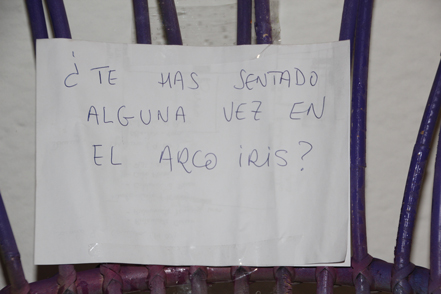 ¿TE HAS SENTADO
ALGUNA VEZ EN
EL ARCO IRIS?